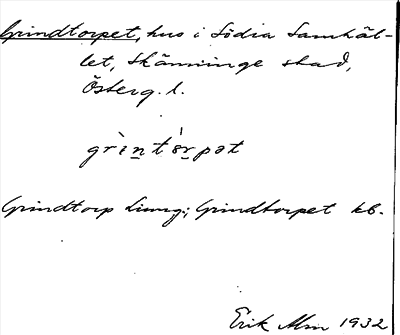 Grindtorpet, hus i Södra Samhäl-
let, Skänninge stad,
Österg. l.
grìntórpət
Grindtorp Ljung; Grindtorpet kb.
Erik Alm 1932